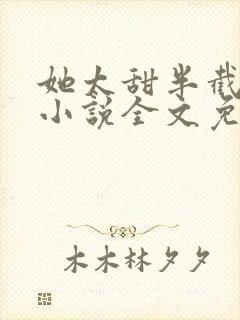 她太甜半截
小说全文免
木木林夕夕